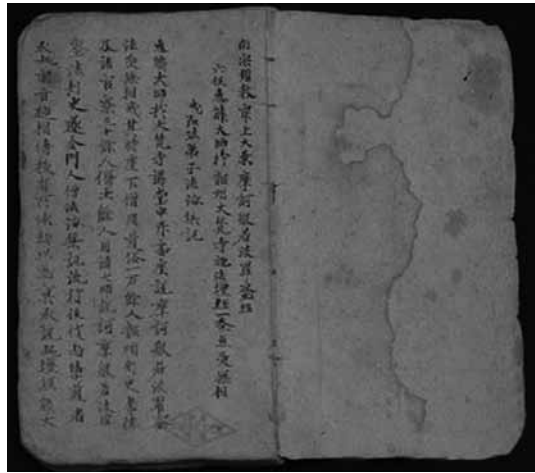 南宗頓教最上大乘摩訶般若波羅蜜經
六祖惠能大師於韶州大梵寺施法壇經一卷兼受無相
戒弘法弟子法海集記
惠能大師於大梵寺講堂中昇高座說摩訶般若波羅蜜
法受無相戒其時座下僧尼道俗一万餘人韶州刺史
及諸官寮三十餘人儒士餘人同請大師說摩訶般若波羅
蜜法刺史遂令門人僧法海集記流行後代與學道者
承此宗旨遞相傳授有所依約以為稟承說此壇經能大